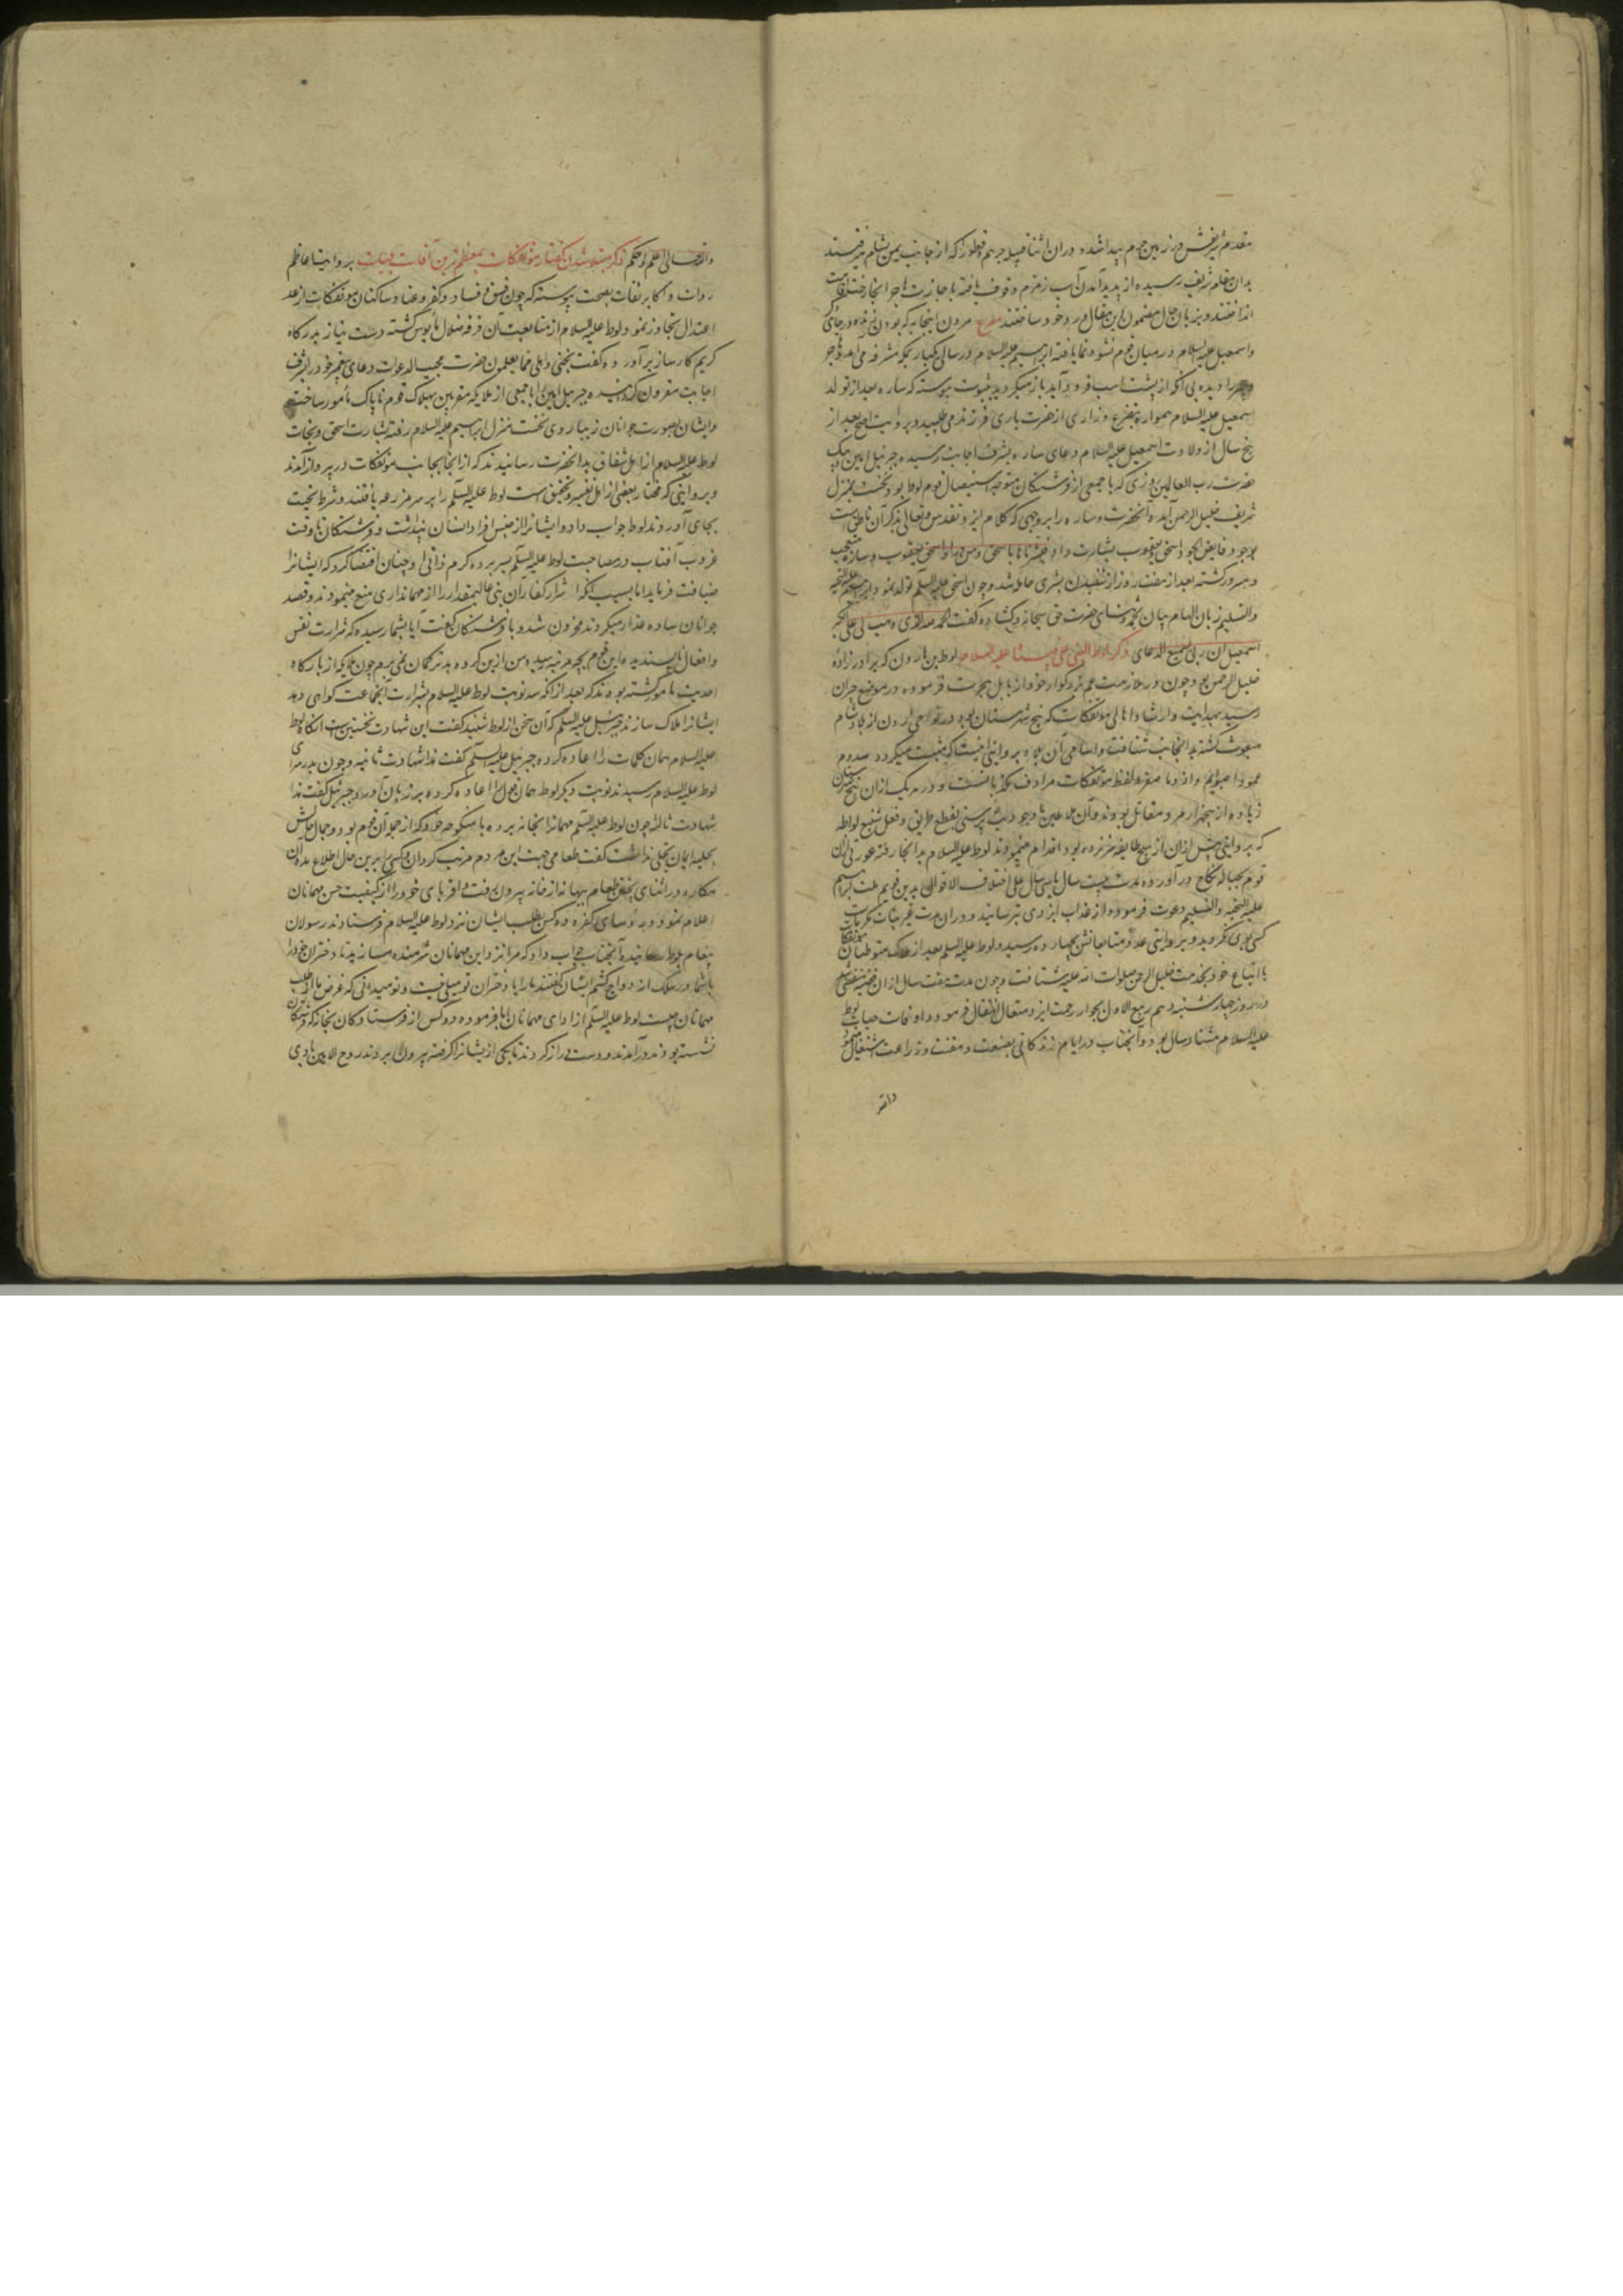 مقدم شریفش در زمین حرم پیدا شد و در آن اثنا قبیله جرهم و قطورا که از جانب یمن بشام میرفتند
بدان مقام شریف رسیده از پدید آمدن آب زمزم وقوف یافته باجازت هاجر آنجا رخت اقامت
انداختند و بزبان حال مضمون این مقال ورد خود ساختند مصرع مردن اینجا به که بودن زنده در جای
واسمعیل علیه السلام در میان قوم نشو و نما یافته ابراهیم علیه السلام در سالی یکبار بمکه مشرفه می آمد و هاجر
را دیده بی آنکه از پشت اسب فرود آید باز میگردید بثبوت پیوسته که ساره بعد از تولد
اسمعیل علیه السلام همواره بتضرع و زاری از حضرت باری فرزند می طلبید و بروایت اصح بعد از
پنج سال از ولادت اسمعیل علیه السلام دعای ساره بشرف اجابت رسیده جبرئیل امین پیک
حضرت رب العالمین روزی که با جمعی از فرشتگان متوجه استیصال قوم لوط بود نخست بمنزل
شریف خلیل الرحمن آمده آنحضرت و ساره را بر وجهی که کلام ایزد تقدس و تعالی بذکر آن ناطق است
بوجود فایض الجود اسحق و یعقوب بشارت داد فبشرناها باسحق ومن وراء اسحق یعقوب و ساره متعجب
و مسرور گشته بعد از هفتاد روز از شنیدن بشری حامله شد و چون اسحق علیه السلم تولد نمود ابراهیم علیه التحیه
والتسلیم زبان الهام بیان بحمد و ثنای حضرت حق سبحانه و گشاده گفت الحمد لله الذی وهب لی علی الکبر
اسمعیل ان ربی لسمیع الدعای ذکر لوط النبی علی نبینا علیه السلام لوط بن هارون که برادرزاده
خلیل الرحمن بود چون در ملازمت عم بزرگوار خود از بابل هجرت فرموده در موضع حران
رسید بهدایت و ارشاد اهالی موتفکات که پنج شهرستان بود در نواحی اردن از بلاد شام
مبعوث گشته بدانجانب شتافت و اسامی آن بلاد بروایتی اینست که مثبت میگردد سدوم
عمودا صبوایم و ازوما صغره لفظ موتفکات مرادف مکذبانست و در هر یک از آن پنج شهرستان
زیاده از چهار هزار مرد مقاتل بودند و آن ملاعین با وجود بت پرستی بقطع طریق و فعل شنیع لواطه
که بروایتی پیش از آن از هیچ طایفه سر نزده بود اقدام مینمودند لوط علیه السلام بدانجا رفته عورتی از آن
قوم بحباله نکاح درآورده مدت بیست سال یا سی سال علی اختلاف الاقوال بدین قویم ملت ابراهیم
علیه التحیه والتسلیم دعوت فرموده از عذاب ایزدی بترسانید و در آن مدت
کسی بوی نگروید و بروایتی عدد متابعانش بچهارده رسید و لوط علیه السلم بعد از هلاک متوطنان موتفکات
با اتباع خود بخدمت خلیل الرحمن صلوات الله علیه شتافت و چون مدت هفت سال از آن قضیه منقضی شد
در روز چهارشنبه دهم ربیع الاول بجوار رحمت ایزد متعال انتقال فرمود و اوقات حیات لوط
علیه السلام هشتاد سال بود و آنجناب در ایام زندگانی بصنعت و زراعت اشتغال مینمود
والله
والله تعالی اعلم و احکم ذکر مبتلا شدن کفار موتفکات بمعظم ترین آفات و بلیات بروایت اعاظم
روات و اکابر ثقات بصحت پیوسته که چون فسق و فساد و کفر و عناد ساکنان موتفکات از حد
اعتدال تجاوز نمود لوط علیه السلام از متابعت آن فرقه ضلال مأیوس گشته دست نیاز بدرگاه
کریم کارساز برآورده گفت نجنی و اهلی مما یعلمون حضرت مجیب الدعوات دعای پیغمبر خود را بشرف
اجابت مقرون گردانیده جبرئیل امین را با جمعی از ملایکه مقربین بهلاک قوم ناپاک مأمور ساخت
و ایشان بصورت جوانان زیبا روی نخست بمنزل ابراهیم علیه السلام رفته بشارت اسحق و نجات
لوط علیه السلام از اهل شقاق بدانحضرت رسانیدند که از آنجا بجانب موتفکات در پرواز آمدند
و بروایتی که مختار بعضی از اهل تفسیر و تحقیق است لوط علیه السلم را بر سر مزرعه یافتند و شرط تحیت
بجای آوردند لوط جواب داد و ایشانرا از جنس افراد انسان پنداشت و فرشتگان تا وقت
غروب آفتاب در مصاحبت لوط علیه السلم بسر برده کرم ذاتی او چنان اقتضا کرد که ایشانرا
ضیافت فرماید اما بسبب آنکه اشرار کفار آن نبی عالیمقدار را از مهمانداری منع مینمودند و قصد
جوانان ساده عذار میکردند محزون شد و با فرشتگان گفت آیا بشما رسیده که شرارت نفس
و افعال ناپسندیده این قوم بچه مرتبه رسیده من ازین گروه بدتر گمان نمی برم چون ملایکه از بارگاه
احدیت مامور گشته بودند که بعد از آنکه سه نوبت لوط علیه السلام بشرارت آنجماعت گواهی دهد
ایشانرا هلاک سازند جبرئیل علیه السلم که آن سخن از لوط شنید گفت این شهادت نخستین است آنگاه لوط
علیه السلام همان کلمات را اعاده کرده جبرئیل علیه السلم گفت هذا شهادت ثانیه و چون بدر سرای
لوط علیه السلام رسیدند نوبت دیگر لوط همان قول را اعاده کرده بر زبان آورد و جبرئیل گفت هذا
شهادت ثالثه چون لوط علیه السلم مهمانرا بخانه برده با منکوحه خود که از جمله آن قوم بود و جمال حالش
بحلیه ایمان تحلی نداشت گفت طعامی جهت این مردم مرتب گردان و کسی را برین حال اطلاع مده آن
مکاره در اثنای پختن طعام ببهانه از خانه بیرون رفت و اقربای خود را از کیفیت حسن مهمانان
اعلام نمود و رؤسای کفره ده کس بطلب ایشان نزد لوط علیه السلام فرستادند رسولان
پیغام بلوط رسانیده آنجناب جواب داد که مرا نزد این مهمانان شرمنده مسازید تا دختران خود را
با شما در سلک ازدواج کشم ایشان گفتند ما را با دختران تو میلی نیست و تو میدانی که غرض ما از طلب
مهمانان چیست لوط علیه السلم از ادای مهمانان ابا فرموده دو کس از فرستادگان بخانه که فرشتگان
نشسته بودند درآمدند و دست دراز کردند تا یکی از ایشانرا گرفته بیرون برند روح الامین بادی